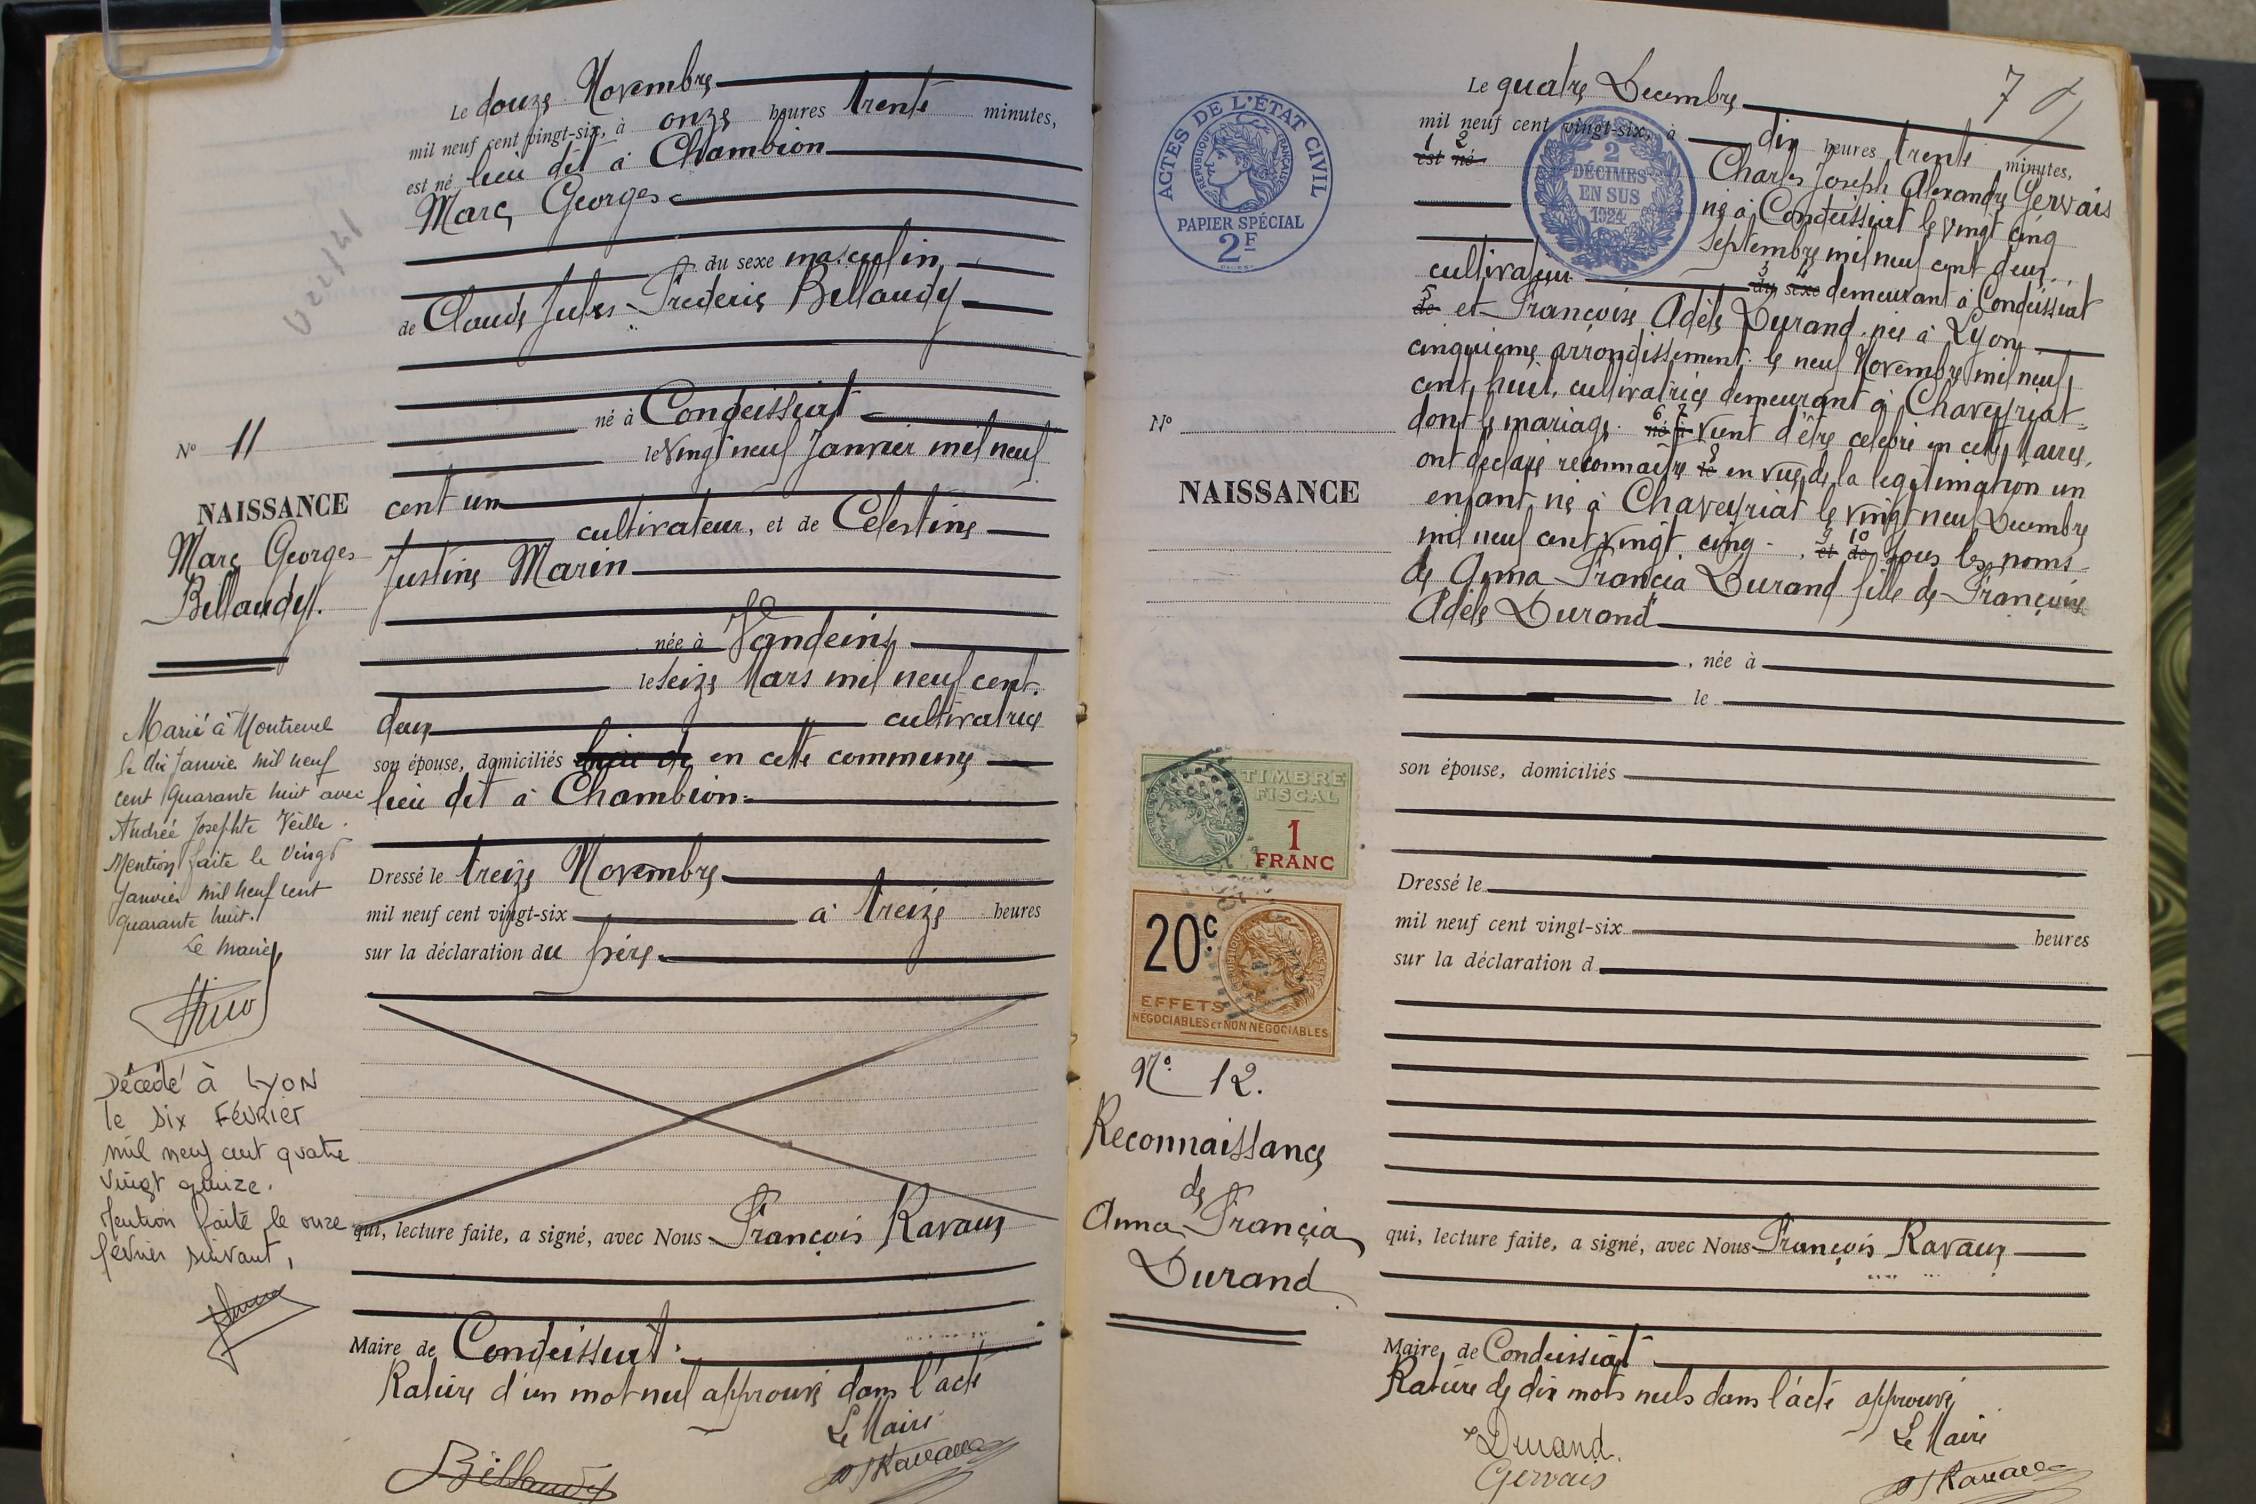 Le douze Novembre
mil neuf cent vingt-six, à onze heures trente minutes,
est né lieu dit à Chambion
Marc Georges
du sexe masculin
de Claude Jules Frederic Billaudy
né à Condeissiat
le vingt neuf Janvier mil neuf
cent un
cultivateur, et de Celestine
Justine Marin
née à Vandeins
le seize Mars mil neuf cent
deux cultivatrice
son épouse, domiciliés en cette commune
lieu dit à Chambion
Dressé le treize Novembre
mil neuf cent vingt-six à treize heures
sur la déclaration du père
qui, lecture faite, a signé, avec Nous François Ravaux
Maire de Condeissiat
Rature d'un mot nul approuvé dans l'acte
Le Maire
Billaudy
Ravaux
N° 11
NAISSANCE
Marc Georges
Billaudy.
Marié à Montrevel
le dix Janvier mil neuf
cent quarante huit avec
Andrée Josephte Veille.
Mention faite le vingt
Janvier mil neuf cent
quarante huit.
Le maire
Décédé à LYON
le six FÉVRIER
mil neuf cent quatre
vingt quinze.
Mention faite le onze
février suivant,
7
ACTES DE L'ÉTAT CIVIL
RÉPUBLIQUE FRANÇAISE
PAPIER SPÉCIAL
2F
2
DÉCIMES
EN SUS
1924
Le quatre Decembre
mil neuf cent vingt-six, à dix heures trente minutes,
1 2
est né Charles Joseph Alexandre Gervais
né à Condeissiat le vingt cinq
Septembre mil neuf cent deux
cultivateur 3 4 du sexe demeurant à Condeissiat
5
de et Françoise Adèle Durand née à Lyon
cinquième arrondissement le neuf Novembre mil neuf
cent huit, cultivatrice demeurant à Chaveyriat
dont le mariage 6 7 né à vient d'être célébré en cette Mairie,
ont déclaré reconnaitre 8 le en vue de la légitimation un
enfant né à Chaveyriat le vingt neuf Decembre
mil neuf cent vingt cinq 9 10 et de sous les noms
de Anna Francia Durand fille de Françoise
Adèle Durand
, née à
le
son épouse, domiciliés
Dressé le
mil neuf cent vingt-six heures
sur la déclaration d
qui, lecture faite, a signé, avec Nous François Ravaux
Maire de Condeissiat
Rature de dix mots nuls dans l'acte approuvé
Le Maire
Durand
Gervais
Ravaux
N°
NAISSANCE
TIMBRE
FISCAL
1
FRANC
20c
EFFETS
NÉGOCIABLES ET NON NÉGOCIABLES
N° 12.
Reconnaissance
de
Anna Francia
Durand